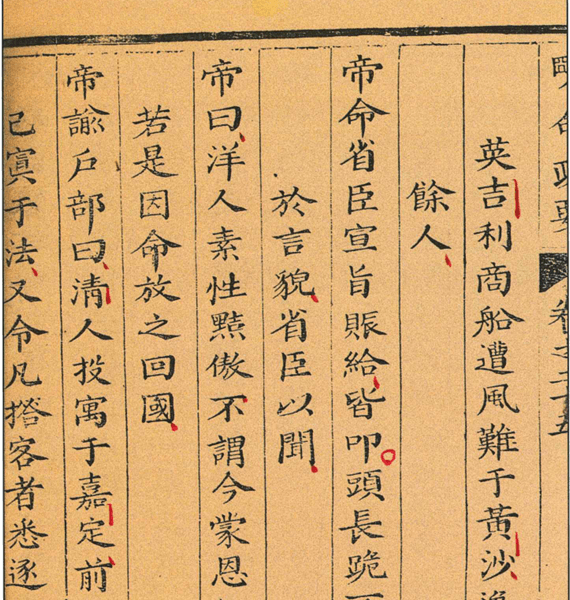 明命政要 卷之二十五
英吉利商船遭風難于黃沙
餘人
帝命省臣宣旨賑給皆叩頭長跪
於言貌省臣以聞
帝曰洋人素性黠傲不謂今蒙恩
若是因命放之回國
帝諭戶部曰清人投寓于嘉定前
已寘于法又令凡搭客者悉逐